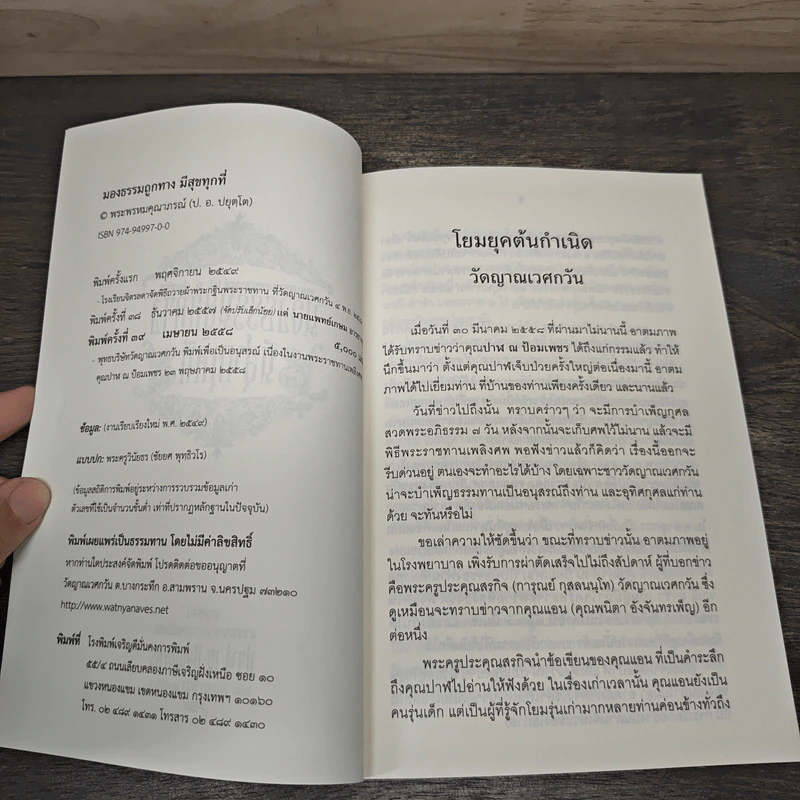 มองธรรมถูกทาง มีสุขทุกที่
© พระพรหมคุณาภรณ์ (ป. อ. ปยุตฺโต)
ISBN 974-94997-0-0
พิมพ์ครั้งแรก พฤศจิกายน ๒๕๔๙
- โรงเรียนจิตรลดาจัดพิธีถวายผ้าพระกฐินพระราชทาน ที่วัดญาณเวศกวัน ๔ พ.ย.
พิมพ์ครั้งที่ ๓๘ ธันวาคม ๒๕๕๗ (จัดปรับเล็กน้อย) แด่ นายแพทย์เกษม
พิมพ์ครั้งที่ ๓๙ เมษายน ๒๕๕๘ ๕,๐๐๐
- พุทธบริษัทวัดญาณเวศกวัน พิมพ์เพื่อเป็นอนุสรณ์ เนื่องในงานพระราชทานเพลิงศพ
คุณปาฬ ณ ป้อมเพชร ๒๓ พฤษภาคม ๒๕๕๘
ข้อมูล: (งานเรียบเรียงใหม่ พ.ศ. ๒๕๔๙)
แบบปก: พระครูวินัยธร (ชัยยศ พุทฺธิวโร)
(ข้อมูลสถิติการพิมพ์อยู่ระหว่างการรวบรวมข้อมูลเก่า
ตัวเลขที่ใช้เป็นจำนวนขั้นต่ำ เท่าที่ปรากฏหลักฐานในปัจจุบัน)
พิมพ์เผยแพร่เป็นธรรมทาน โดยไม่มีค่าลิขสิทธิ์
หากท่านใดประสงค์จัดพิมพ์ โปรดติดต่อขออนุญาตที่
วัดญาณเวศกวัน ต.บางกระทึก อ.สามพราน จ.นครปฐม ๗๓๒๑๐
http://www.watnyanaves.net
พิมพ์ที่ โรงพิมพ์เจริญดีมั่นคงการพิมพ์
๕๕/๔ ถนนเลียบคลองภาษีเจริญฝั่งเหนือ ซอย ๑๐
แขวงหนองแขม เขตหนองแขม กรุงเทพฯ ๑๐๑๖๐
โทร. ๐๒ ๔๘๙ ๑๔๓๑ โทรสาร ๐๒ ๔๘๙ ๑๔๓๐
โยมยุคต้นกำเนิด
วัดญาณเวศกวัน
เมื่อวันที่ ๓๐ มีนาคม ๒๕๕๘ ที่ผ่านมาไม่นานนี้ อาตมภาพ
ได้รับทราบข่าวว่าคุณปาฬ ณ ป้อมเพชร ได้ถึงแก่กรรมแล้ว ทำให้
นึกขึ้นมาว่า ตั้งแต่คุณปาฬเจ็บป่วยครั้งใหญ่ต่อเนื่องมานี้ อาตม
ภาพได้ไปเยี่ยมท่าน ที่บ้านของท่านเพียงครั้งเดียว และนานแล้ว
วันที่ข่าวไปถึงนั้น ทราบคร่าวๆ ว่า จะมีการบำเพ็ญกุศล
สวดพระอภิธรรม ๗ วัน หลังจากนั้นจะเก็บศพไว้ไม่นาน แล้วจะมี
พิธีพระราชทานเพลิงศพ พอฟังข่าวแล้วก็คิดว่า เรื่องนี้ออกจะ
รีบด่วนอยู่ ตนเองจะทำอะไรได้บ้าง โดยเฉพาะชาววัดญาณเวศกวัน
น่าจะบำเพ็ญธรรมทานเป็นอนุสรณ์ถึงท่าน และอุทิศกุศลแก่ท่าน
ด้วย จะทันหรือไม่
ขอเล่าความให้ชัดขึ้นว่า ขณะที่ทราบข่าวนั้น อาตมภาพอยู่
ในโรงพยาบาล เพิ่งรับการผ่าตัดเสร็จไปไม่ถึงสัปดาห์ ผู้ที่บอกข่าว
คือพระครูประคุณสรกิจ (การุณย์ กุสลนนฺโท) วัดญาณเวศกวัน ซึ่ง
ดูเหมือนจะทราบข่าวจากคุณแอน (คุณพนิตา อังจันทรเพ็ญ) อีก
ต่อหนึ่ง
พระครูประคุณสรกิจนำข้อเขียนของคุณแอน ที่เป็นคำระลึก
ถึงคุณปาฬไปอ่านให้ฟังด้วย ในเรื่องเก่าเวลานั้น คุณแอนยังเป็น
คนรุ่นเด็ก แต่เป็นผู้ที่รู้จักโยมรุ่นเก่ามากหลายท่านค่อนข้างทั่วถึง